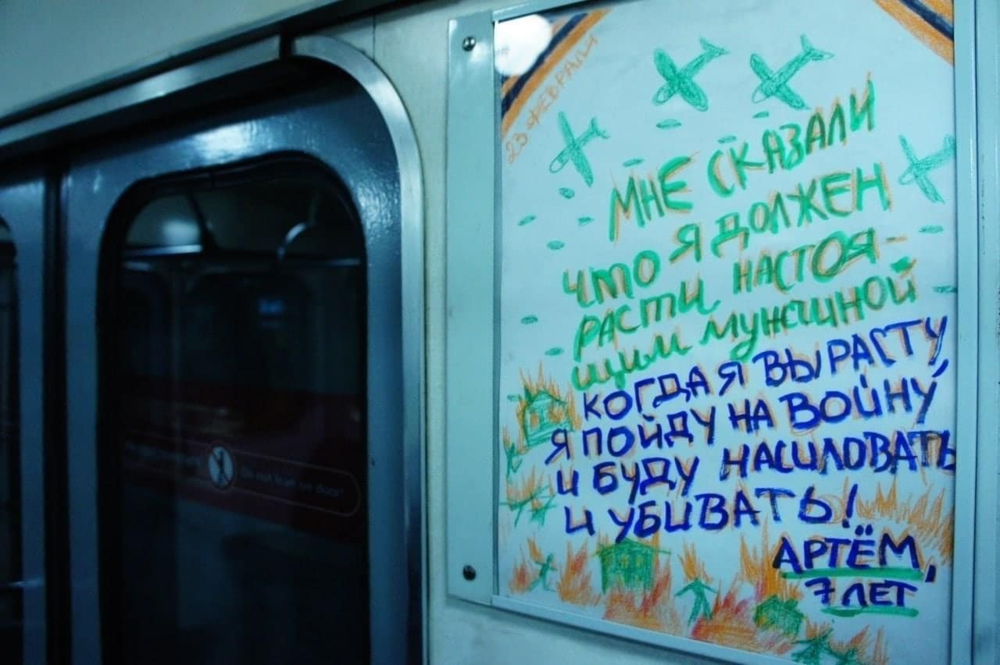 23 ФЕВРАЛЯ
МНЕ СКАЗАЛИ
ЧТО Я ДОЛЖЕН
РАСТИ НАСТОЯ-
ЩИМ МУЖЧИНОЙ
КОГДА Я ВЫРАСТУ,
Я ПОЙДУ НА ВОЙНУ
И БУДУ НАСИЛОВАТЬ
И УБИВАТЬ!
АРТЁМ,
7 ЛЕТ